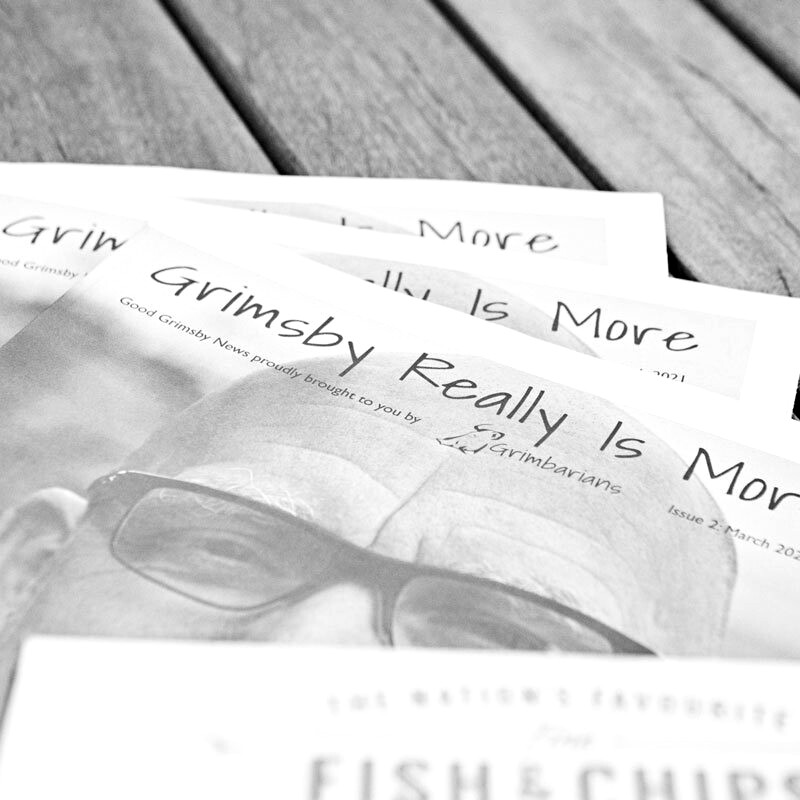 More
Grim
ood Grimsby
lly Is More
2021
Grimsby Really Is Mor
Good Grimsby News proudly brought to you by Grimbarians
Issue 2: March 202
THE NATION'S FAVOURITE
FISH & CHIPS